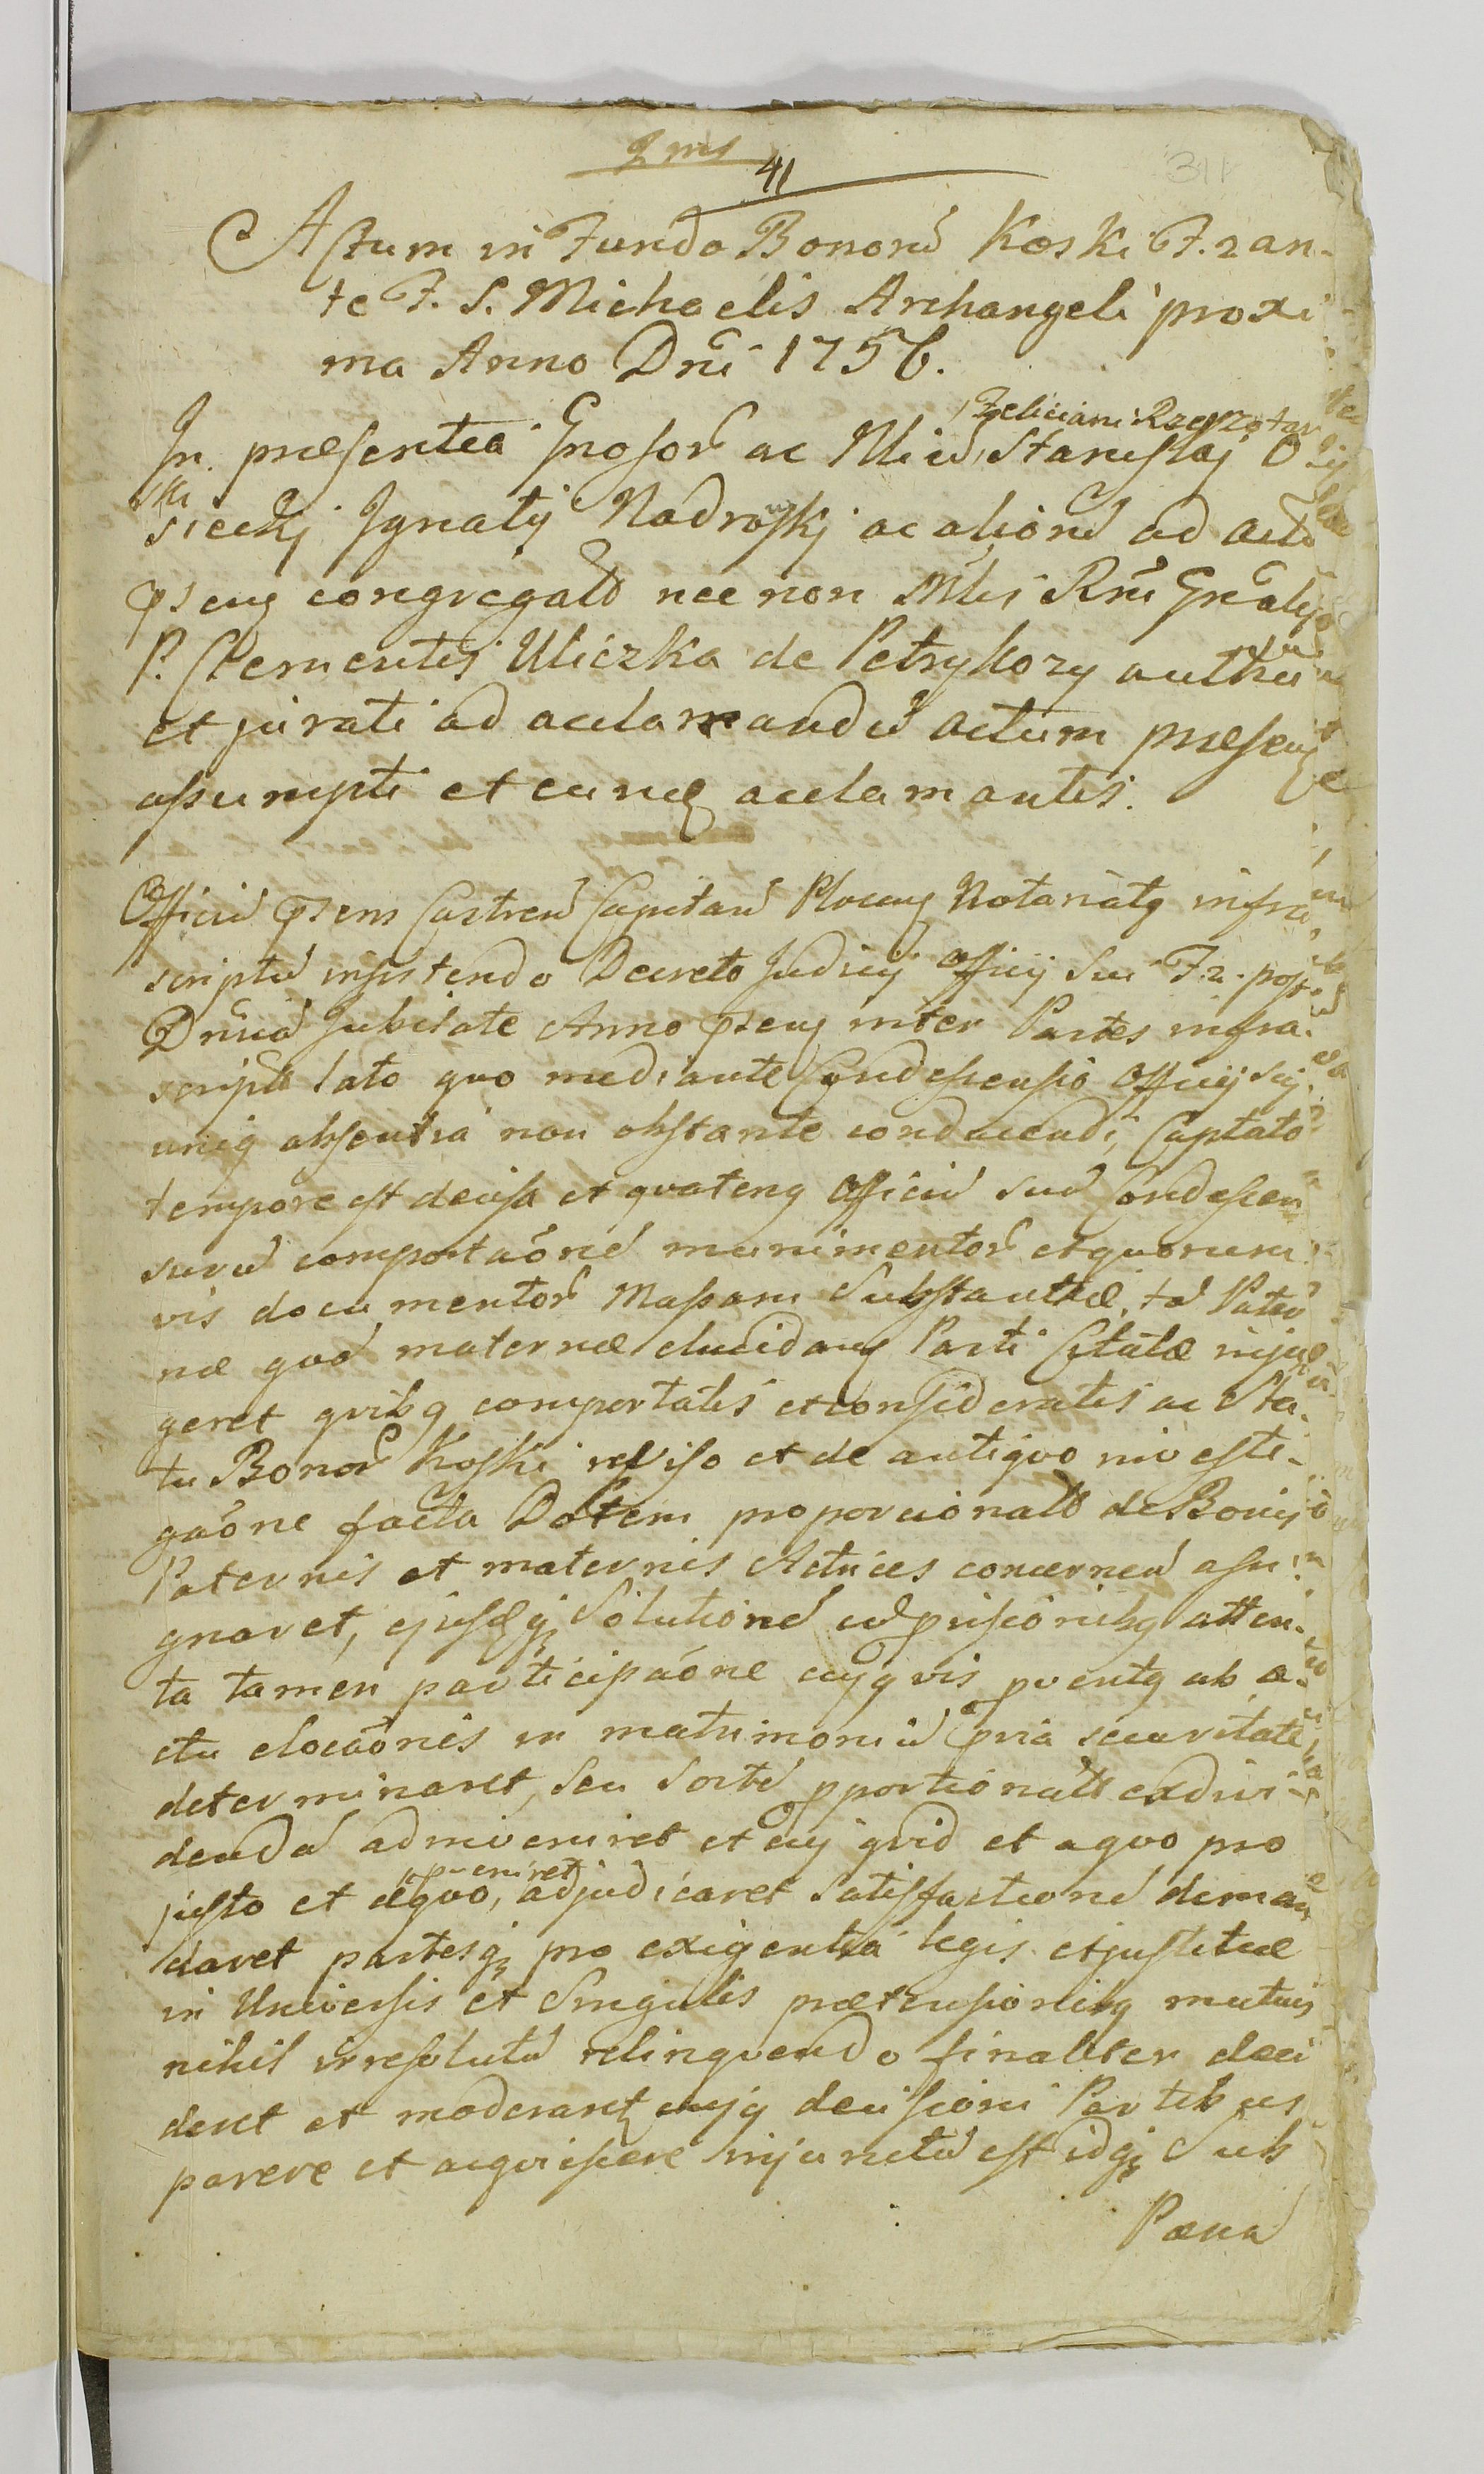 41
311
Actum in Fundo Bonorũ Koski F. 2 an-
te F. S. Michaelis Archangeli proxi
ma Anno Dñi 1756.
Feliciani Rzeszotar
In præsentia Gnosor̃ ac Mliũ, Stanislaj O
ski
sieckj Ignatij Nadroskj ac aliorũ ad actũ
congregatõ nec non Mlis Rñi Gñalis
P. Clementis Uliczka de Petrykozy
et jurati ad acclamandũ actum præsens
assumpti et eumq acclamantis.
Officiũ Castren Capitan Plocen Notariatq infra
scriptũ insistendo Decreto Judicij Officij Sui F. 2. post
Dñicã Jubilate Anno inter Partes infra-
script lato quo mediante Condescensio Officij sui
uniq absentia non obstante conducendi, Captato
tempore est decisa et quatenq Officiũ suũ Condescen
surũ comportaõnẽ munimentor̃ et quorum
vis documentor̃ Massam Substantiæ, tã Pater
næ quã maternæ elucidan Parti Citatæ injun
geret quibq comportatis et consideratis ac Sta-
tu Bonor̃ Koski reviso et de antiquo investi-
gaõne facta Dotem proporcionalẽ de Bonis
Paternis et maternis Actrices concernen assi-
gnaret, ejusdẽq Solutionẽ atten-
ta tamen participaõne cujqvis pventq ab a-
ctu elocaõnis in matrimoniũ pvia securitate
determinaret, seu Sortẽ pportionalẽ exdivi-
dendã adinveniret et cuj quid et a quo pro
inveniret
justo et æquo, adjudicaret Satisfactionẽ deman
daret partesq pro exigentia legis et justitiæ
in Universis et Singulis prætensionibq mutuis
nihil irresolutũ relinquendo finaliter deci
deret et moderaret cujq decisioni Partibus
parere et acquiescere injunctũ est idq Sub
Pœna